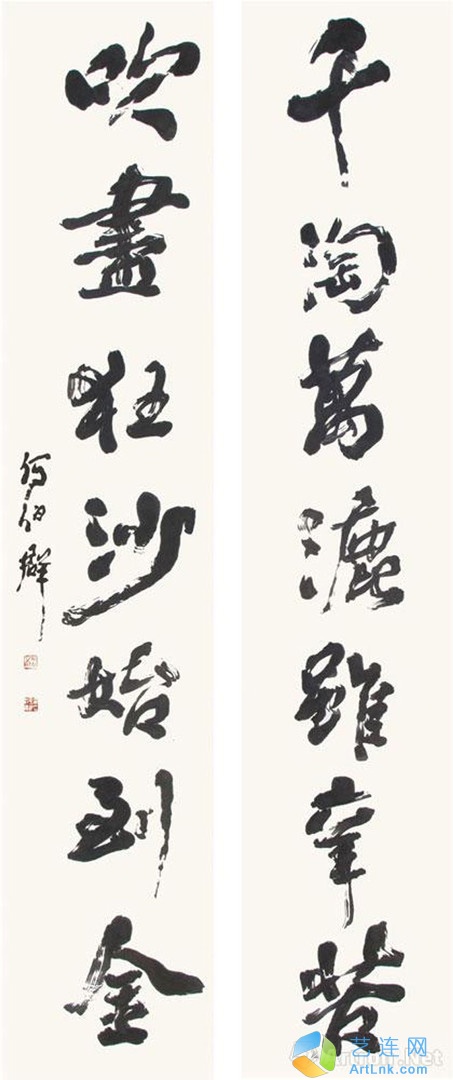 千淘萬漉雖辛苦
吹盡狂沙始到金
何伯群
艺连网
ArtLnk.com